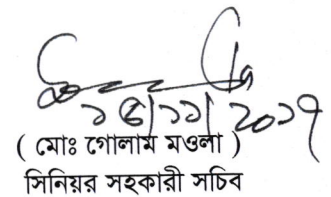 ১৫/১১/২০১৭
( মোঃ গোলাম মওলা )
সিনিয়র সহকারী সচিব